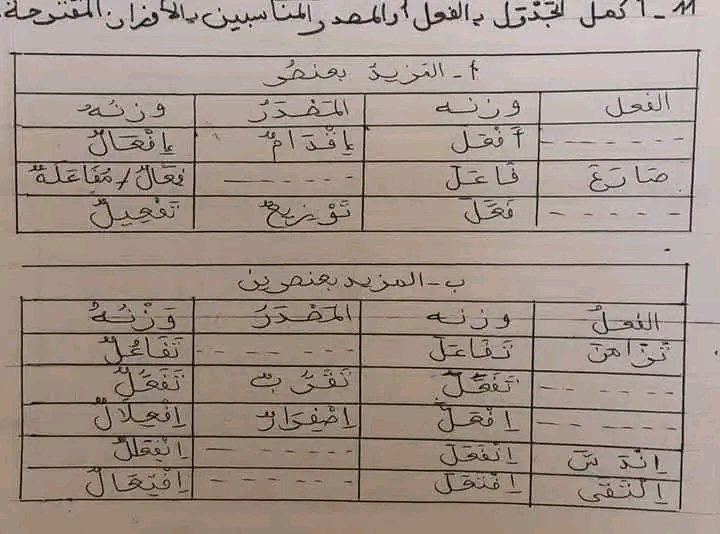 11 - أكمل الجَدْوَل بـالفعل أو المصدر المناسبين بـالأوزان المقترحة
أ - المزيد بعنصر
الفعل وزنه المَصْدَرُ وزنهُ
------- أَفْعَلَ إِقْدَامٌ إِفْعَالٌ
صَارَعَ فَاعَلَ ------- فِعَالٌ / مُفَاعَلَةٌ
----- فَعَّلَ تَوْزِيعٌ تَفْعِيلٌ
ب - المزيد بعنصرين
الفعلُ وزنه المَصْدَرُ وَزْنُهُ
تَزَامَنَ تَفَاعَلَ ------- تَفَاعُلٌ
------ تَفَعَّلَ تَقَرُّبٌ تَفَعُّلٌ
------ اِفْعَلَّ اِصْفِرَارٌ اِفْعِلَالٌ
اِنْدَسَّ اِنْفَعَلَ ------- اِنْفِعَالٌ
اِلْتَقَى اِفْتَعَلَ ------- اِفْتِعَالٌ